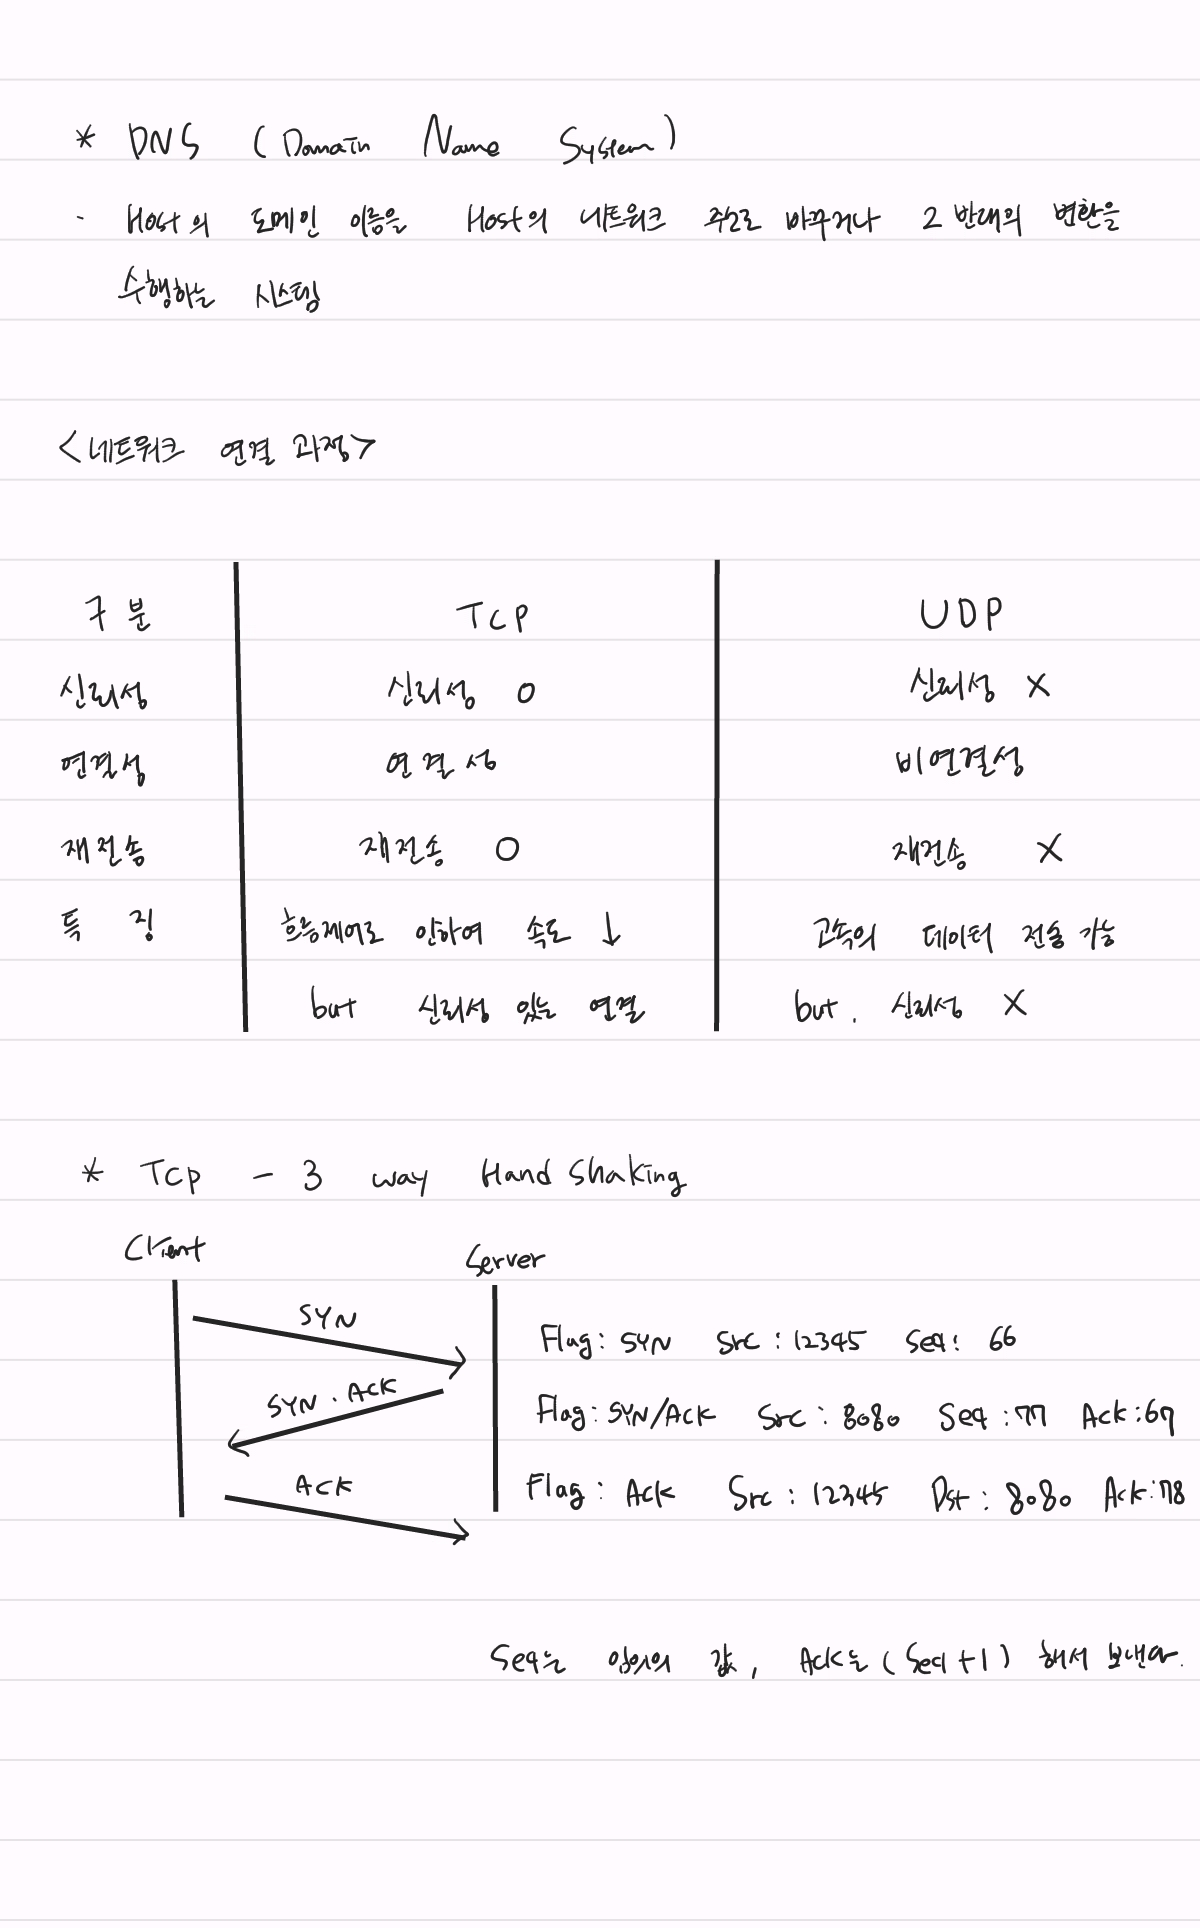 * DNS (Domain Name System)
- Host의 도메인 이름을 Host의 네트워크 주소로 바꾸거나 그 반대의 변환을
수행하는 시스템
<네트워크 연결 과정>
구분 TCP UDP
신뢰성 신뢰성 O 신뢰성 X
연결성 연결성 비연결성
재전송 재전송 O 재전송 X
특징 흐름제어로 인하여 속도 ↓ 고속의 데이터 전송 가능
but 신뢰성 있는 연결 but. 신뢰성 X
* TCP - 3 way Hand Shaking
Client Server
SYN Flag: SYN Src: 12345 Seq: 66
SYN · ACK Flag: SYN/ACK Src: 8080 Seq: 77 Ack: 67
ACK Flag: Ack Src: 12345 Dst: 8080 Ack: 78
Seq는 임의의 값, Ack는 (Seq + 1) 해서 보낸다.